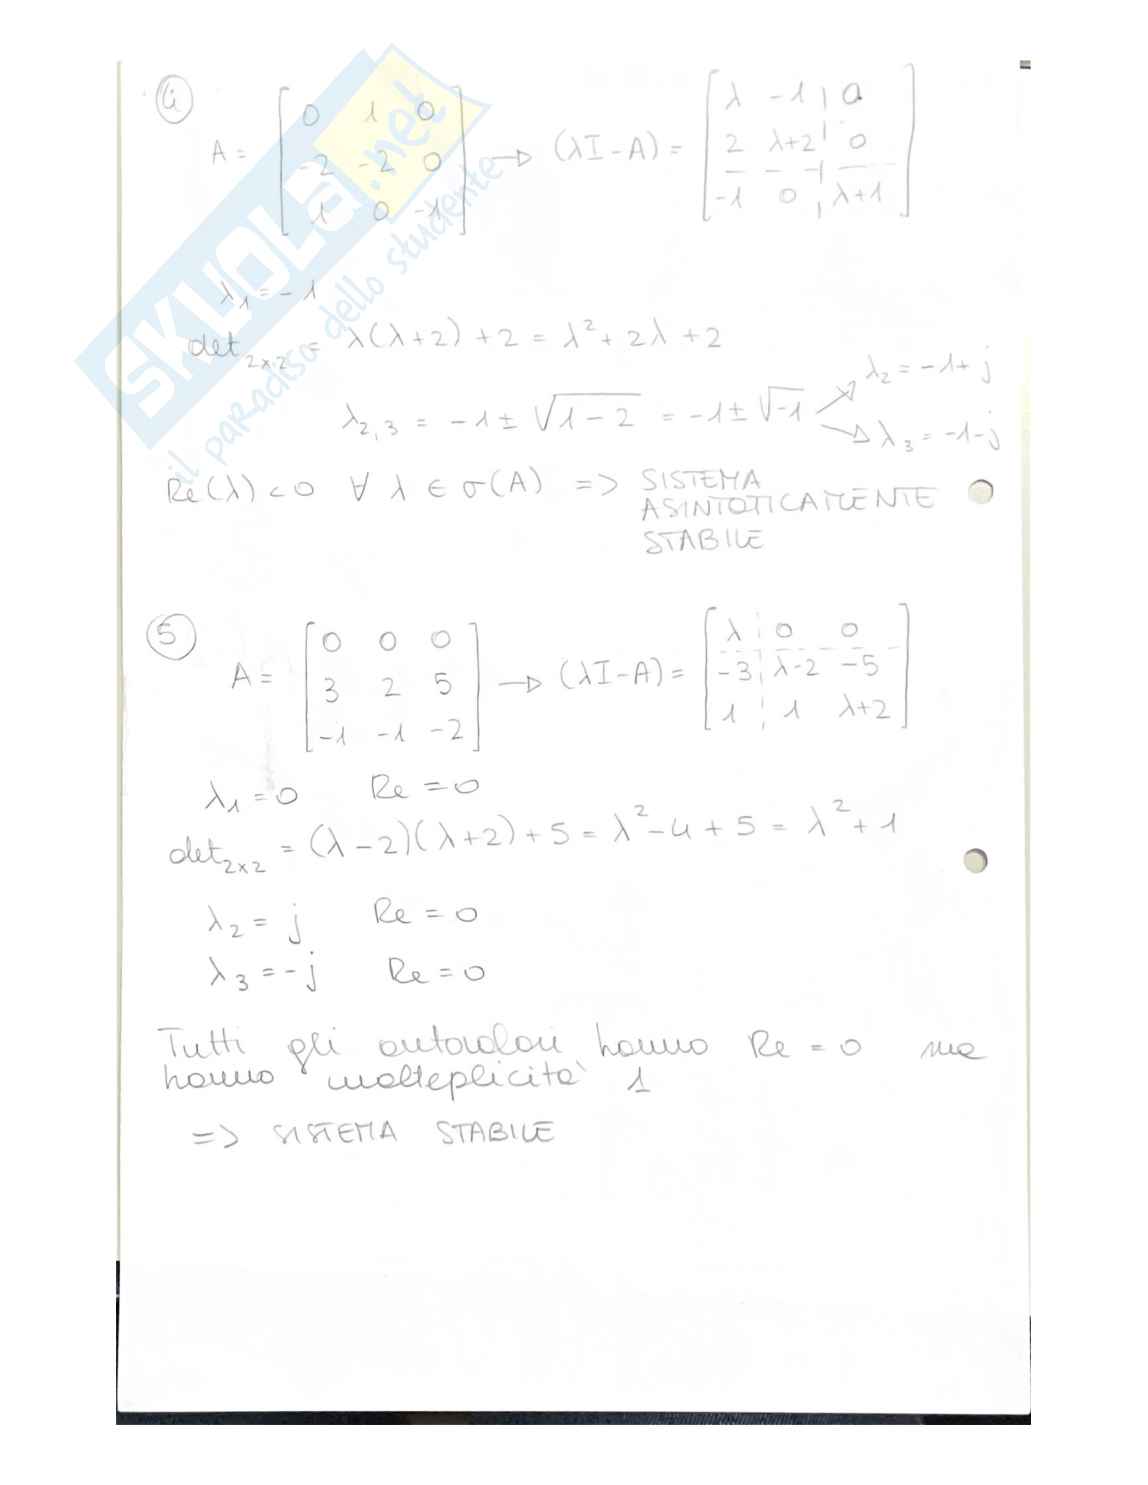 4
A = [ 0 1 0 ; -2 -2 0 ; 1 0 -1 ] → (λI-A) = [ λ -1 0 ; 2 λ+2 0 ; -1 0 λ+1 ]
λ1 = -1
det2x2 = λ(λ+2)+2 = λ²+2λ+2
λ2,3 = -1 ± √1-2 = -1 ± √-1
λ2 = -1+j
λ3 = -1-j
Re(λ)<0 ∀ λ ∈ σ(A) => SISTEMA
ASINTOTICAMENTE
STABILE
5
A = [ 0 0 0 ; 3 2 5 ; -1 -1 -2 ] → (λI-A) = [ λ 0 0 ; -3 λ-2 -5 ; 1 1 λ+2 ]
λ1 = 0 Re = 0
det2x2 = (λ-2)(λ+2)+5 = λ²-4+5 = λ²+1
λ2 = j Re = 0
λ3 = -j Re = 0
Tutti gli autovalori hanno Re = 0 ma
hanno molteplicità 1
=> SISTEMA STABILE
SKUOLA.net
il paradiso dello studente